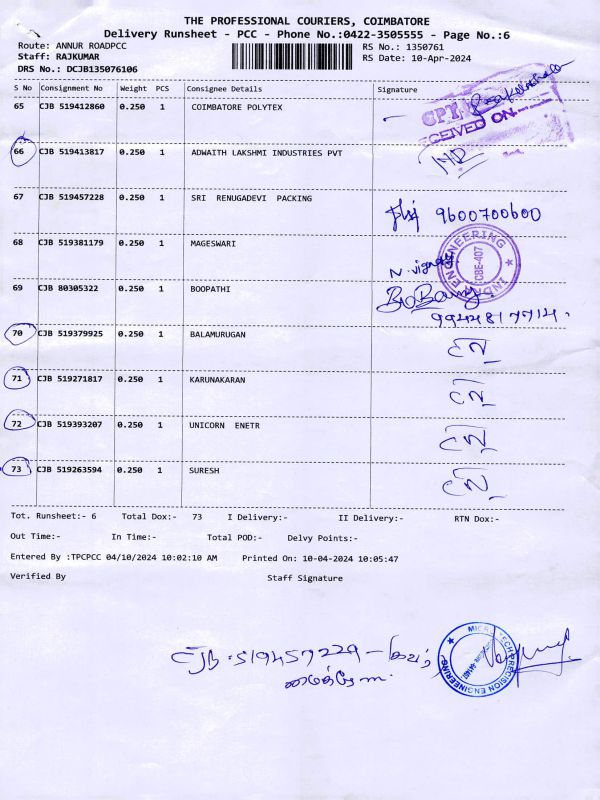 THE PROFESSIONAL COURIERS, COIMBATORE
Delivery Runsheet - PCC - Phone No.:0422-3505555 - Page No.:6
Route: ANNUR ROADPCC RS No.: 1350761
Staff: RAJKUMAR RS Date: 10-Apr-2024
DRS No.: DCJB135076106
S No Consignment No Weight PCS Consignee Details Signature
65 CJB 519412860 0.250 1 COIMBATORE POLYTEX
66 CJB 519413817 0.250 1 ADWAITH LAKSHMI INDUSTRIES PVT
67 CJB 519457228 0.250 1 SRI RENUGADEVI PACKING 9600700600
68 CJB 519381179 0.250 1 MAGESWARI
ENGINEERING
CBE-407
69 CJB 80305322 0.250 1 BOOPATHI
9944817714.
70 CJB 519379925 0.250 1 BALAMURUGAN
71 CJB 519271817 0.250 1 KARUNAKARAN
72 CJB 519393207 0.250 1 UNICORN ENETR
73 CJB 519263594 0.250 1 SURESH
Tot. Runsheet:- 6 Total Dox:- 73 I Delivery:- II Delivery:- RTN Dox:-
Out Time:- In Time:- Total POD:- Delvy Points:-
Entered By :TPCPCC 04/10/2024 10:02:10 AM Printed On: 10-04-2024 10:05:47
Verified By Staff Signature
CJB-519457229 -